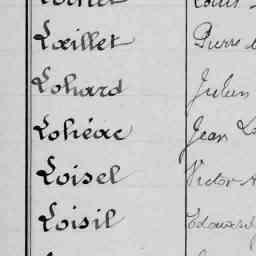 Lœillet Pierre
Lohard Julien
Lohéac Jean
Loisel Victor
Loisil Edouard